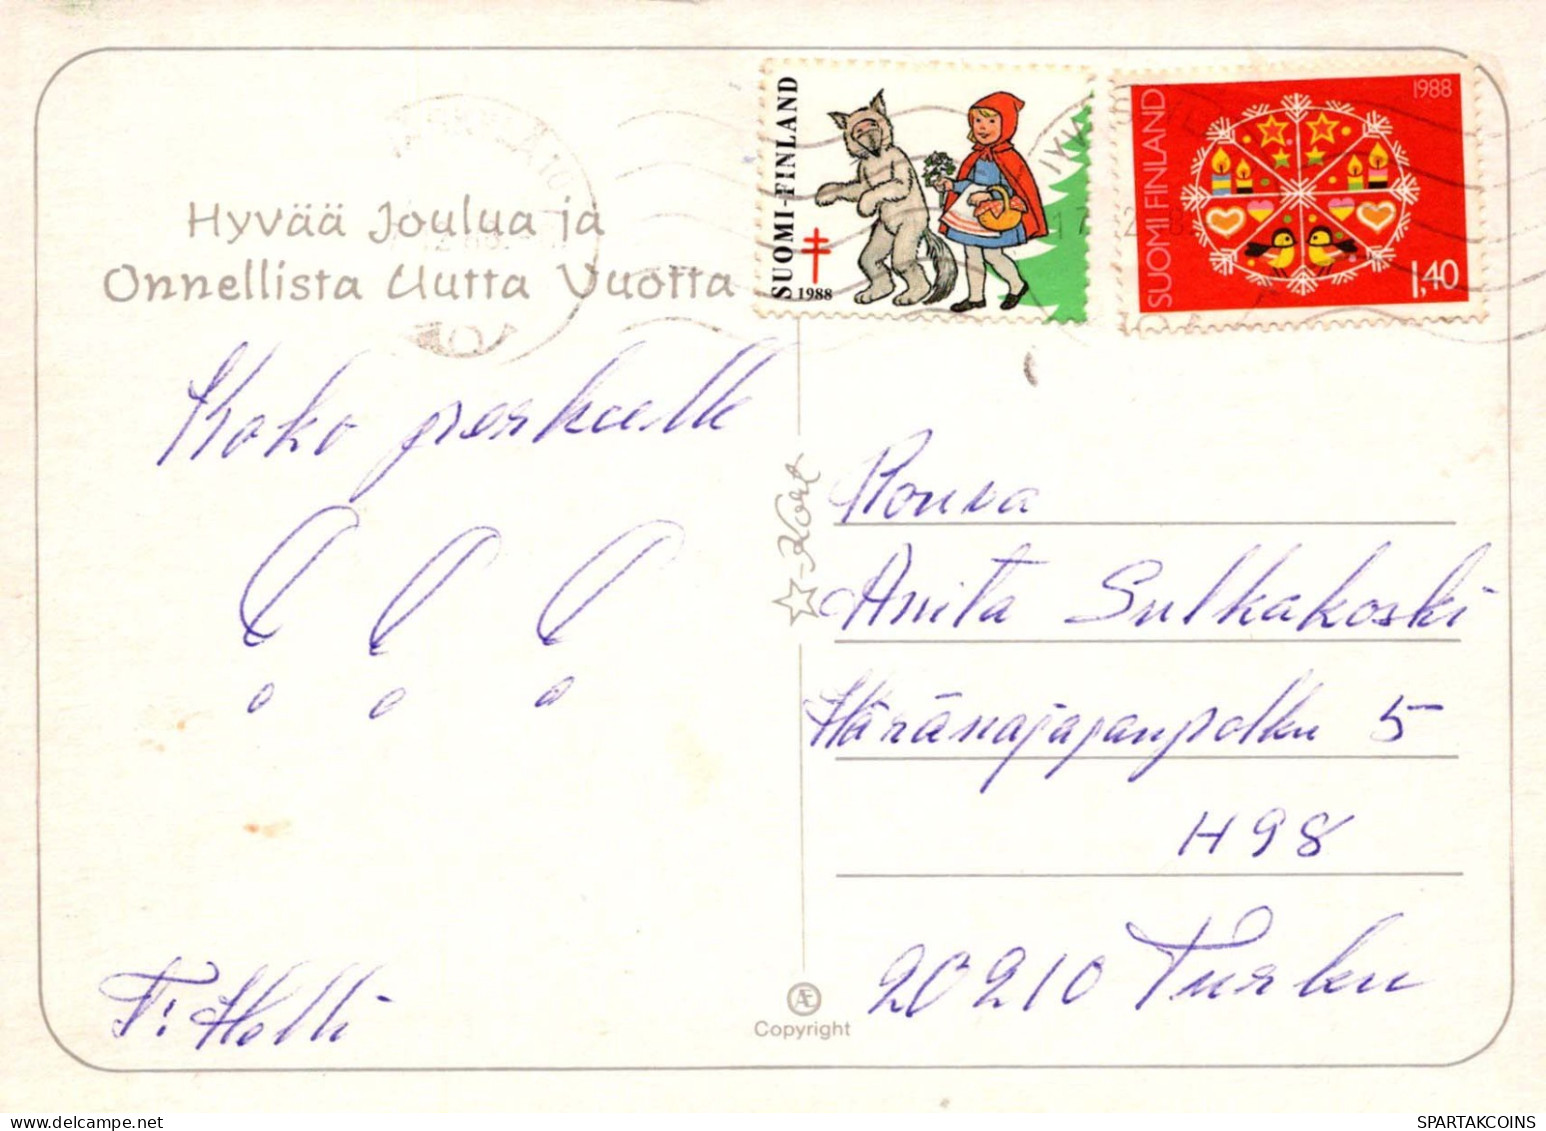 Hyvää Joulua ja
Onnellista Uutta Vuotta
Koko perheelle
! ! !
T: Helli
SUOMI-FINLAND
1988
SUOMI FINLAND
1988
1,40
17.12.
☆-Kort
Rouva
Anita Sulkakoski
Häränajajanpolku 5
H 98
20210 Turku
Æ
Copyright
SPARTAKCOINS